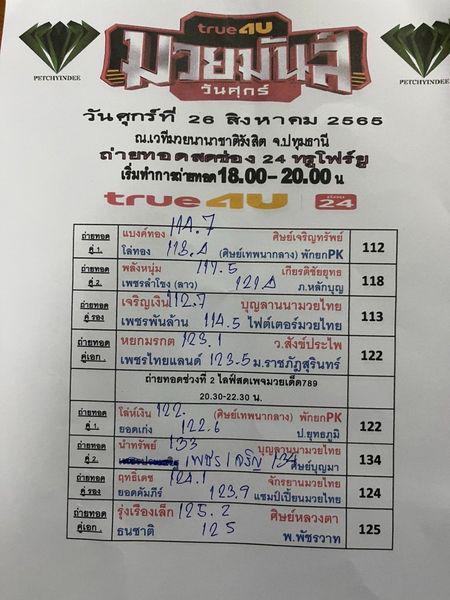 PETCHYINDEE
true4U
มวยมันส์
วันศุกร์
PETCHYINDEE
วันศุกร์ที่ 26 สิงหาคม 2565
ณ.เวทีมวยนานาชาติรังสิต จ.ปทุมธานี
ถ่ายทอดสดช่อง 24 ทรูโฟร์ยู
เริ่มทำการถ่ายทอด 18.00-20.00 น
true4U ช่อง 24
ถ่ายทอด แบงค์ทอง 114.7 ศิษย์เจริญทรัพย์
คู่ 1. โล่ทอง (ศิษย์เทพนากลาง) พักยกPK 112
ถ่ายทอด พลังหนุ่ม 117.5 เกียรติชัยยุทธ
คู่ 2. เพชรลำโขง (ลาว) ภ.หลักบุญ 118
ถ่ายทอด เจริญเงิน 112.7 บุญลานนามวยไทย
คู่ รอง เพชรพันล้าน 114.5 ไฟต์เตอร์มวยไทย 113
ถ่ายทอด หยกมรกต 123.1 ว.สังข์ประไพ
คู่เอก . เพชรไทยแลนด์ 123.5 ม.ราชภัฏสุรินทร์ 122
ถ่ายทอดช่วงที่ 2 ไลฟ์สดเพจมวยเด็ด789
20.30-22.30 น.
ถ่ายทอด โล่ห์เงิน 122. (ศิษย์เทพนากลาง) พักยกPK
คู่ 1. ยอดเก่ง 122.6 ป.ยุทธภูมิ 122
ถ่ายทอด นำทรัพย์ 133 บุญลานนามวยไทย
คู่ 2. เพชรเจริญ 134 ศิษย์บุญมา 134
ถ่ายทอด ฤทธิเดช 124.1 จักรยานมวยไทย
คู่ รอง ยอดคัมภีร์ 123.9 แชมป์เปี้ยนมวยไทย 124
ถ่ายทอด รุ่งเรืองเล็ก 125.2 ศิษย์หลวงตา
คู่เอก . ธนชาติ 125 พ.พัชรวาท 125